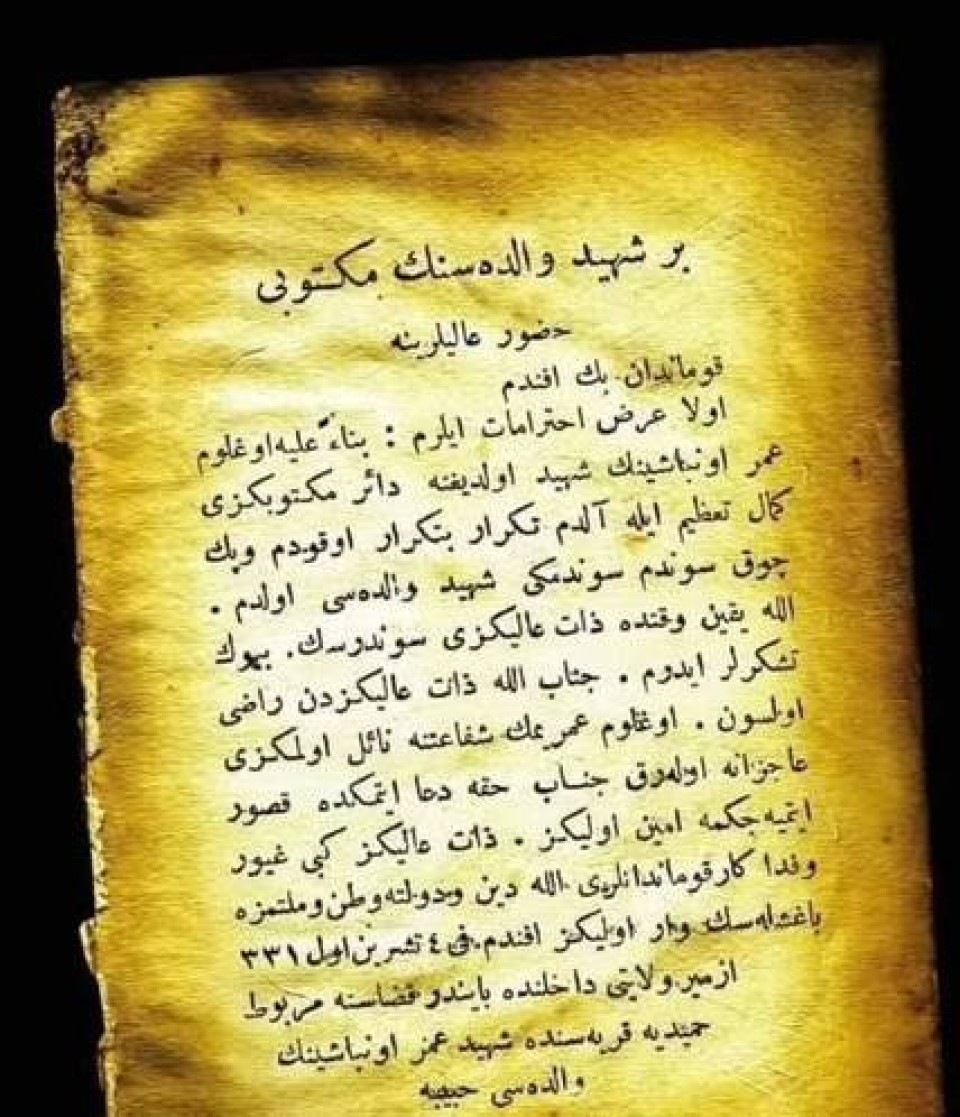 بر شهيد والده‌سنك مكتوبى
حضور عاليلرينه
قوماندان بك افندم
اولا عرض احترامات ايلرم : بناءً عليه اوغلوم
عمر اونباشينك شهيد اولديغنه دائر مكتوبكزى
كمال تعظيم ايله آلدم تكرار بتكرار اوقودم وپك
چوق سوندم سوندمكى شهيد والده‌سى اولدم .
الله يقين وقتده ذات عاليكزى سوندرسك . بيوك
تشكرلر ايدوم . جناب الله ذات عاليكزدن راضى
اولسون . اوغلوم عمريمك شفاعتنه نائل اولمكزى
عاجزانه اوله‌رق جناب حقه دعا ايتمكده قصور
ايتميه‌جكمه امين اوليكز . ذات عاليكز كبى غيور
وفدا كار قوماندانلرى الله دين ودولته وطن وملتمزه
باغشله‌سك وار اوليكز افندم . فى ٤ تشرين اول ٣٣١
ازمير ولايتى داخلنده بايندر قضاسنه مربوط
حميديه قريه‌سنده شهيد عمر اونباشينك
والده‌سى حبيبه